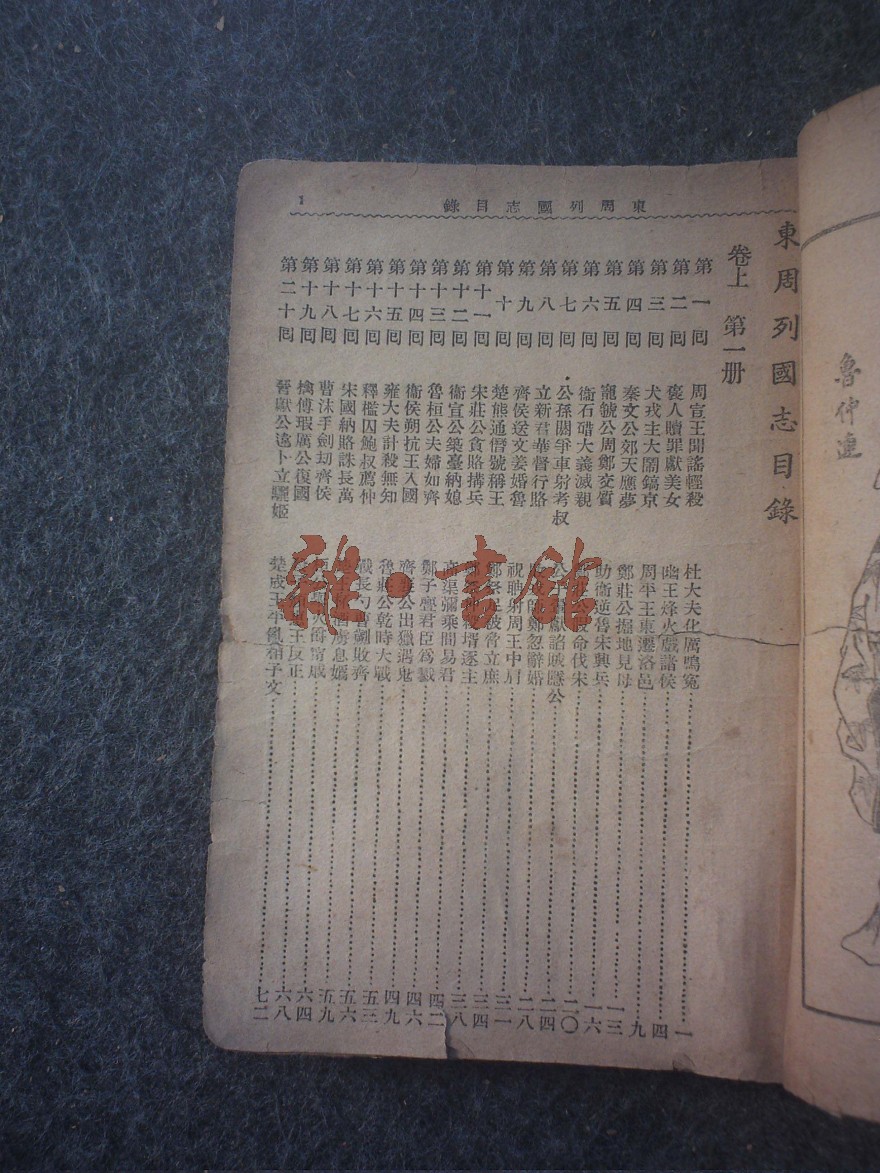 東周列國志目錄
1
東周列國志目錄
卷上 第一册
第一囘 周宣王聞謠輕殺 杜大夫化厲鳴冤 一
第二囘 褒人贖罪獻美女 幽王烽火戲諸侯 四
第三囘 犬戎主大鬧鎬京 周平王東遷洛邑 九
第四囘 秦文公郊天應夢 鄭莊公掘地見母 一三
第五囘 寵虢公周鄭交質 助衞逆魯宋興兵 一六
第六囘 衞石碏大義滅親 命伐宋 二〇
第七囘 公孫閼爭車射考叔 公 獻諂賊隱公 二四
第八囘 立新君華督行賂 鄭忽辭婚 二八
第九囘 齊侯送文姜婚魯 祝聃射周王中肩 三一
第十囘 楚熊通僭號稱王 鄭祭 被脅立庶 三四
第十一囘 宋莊公貪賂搆兵 壻逐主 三八
第十二囘 衞宣公築臺納媳 高渠彌乘間易君 四二
第十三囘 魯桓公夫婦如齊 鄭子亹君臣爲戮 四六
第十四囘 衞侯朔抗王入國 齊 公出獵遇鬼 四九
第十五囘 雍大夫計殺無知 魯莊公乾時大戰 五三
第十六囘 釋檻囚鮑叔薦仲 戰長勺曹劌敗齊 五六
第十七囘 宋國納賂誅長萬 息嬀 五九
第十八囘 曹沬手劍劫齊侯 甯戚 六四
第十九囘 擒傅瑕厲公復國 王反正 六八
第二十囘 晉獻公違卜立驪姬 楚成王平亂相子文 七二
魯仲連
雜·書館